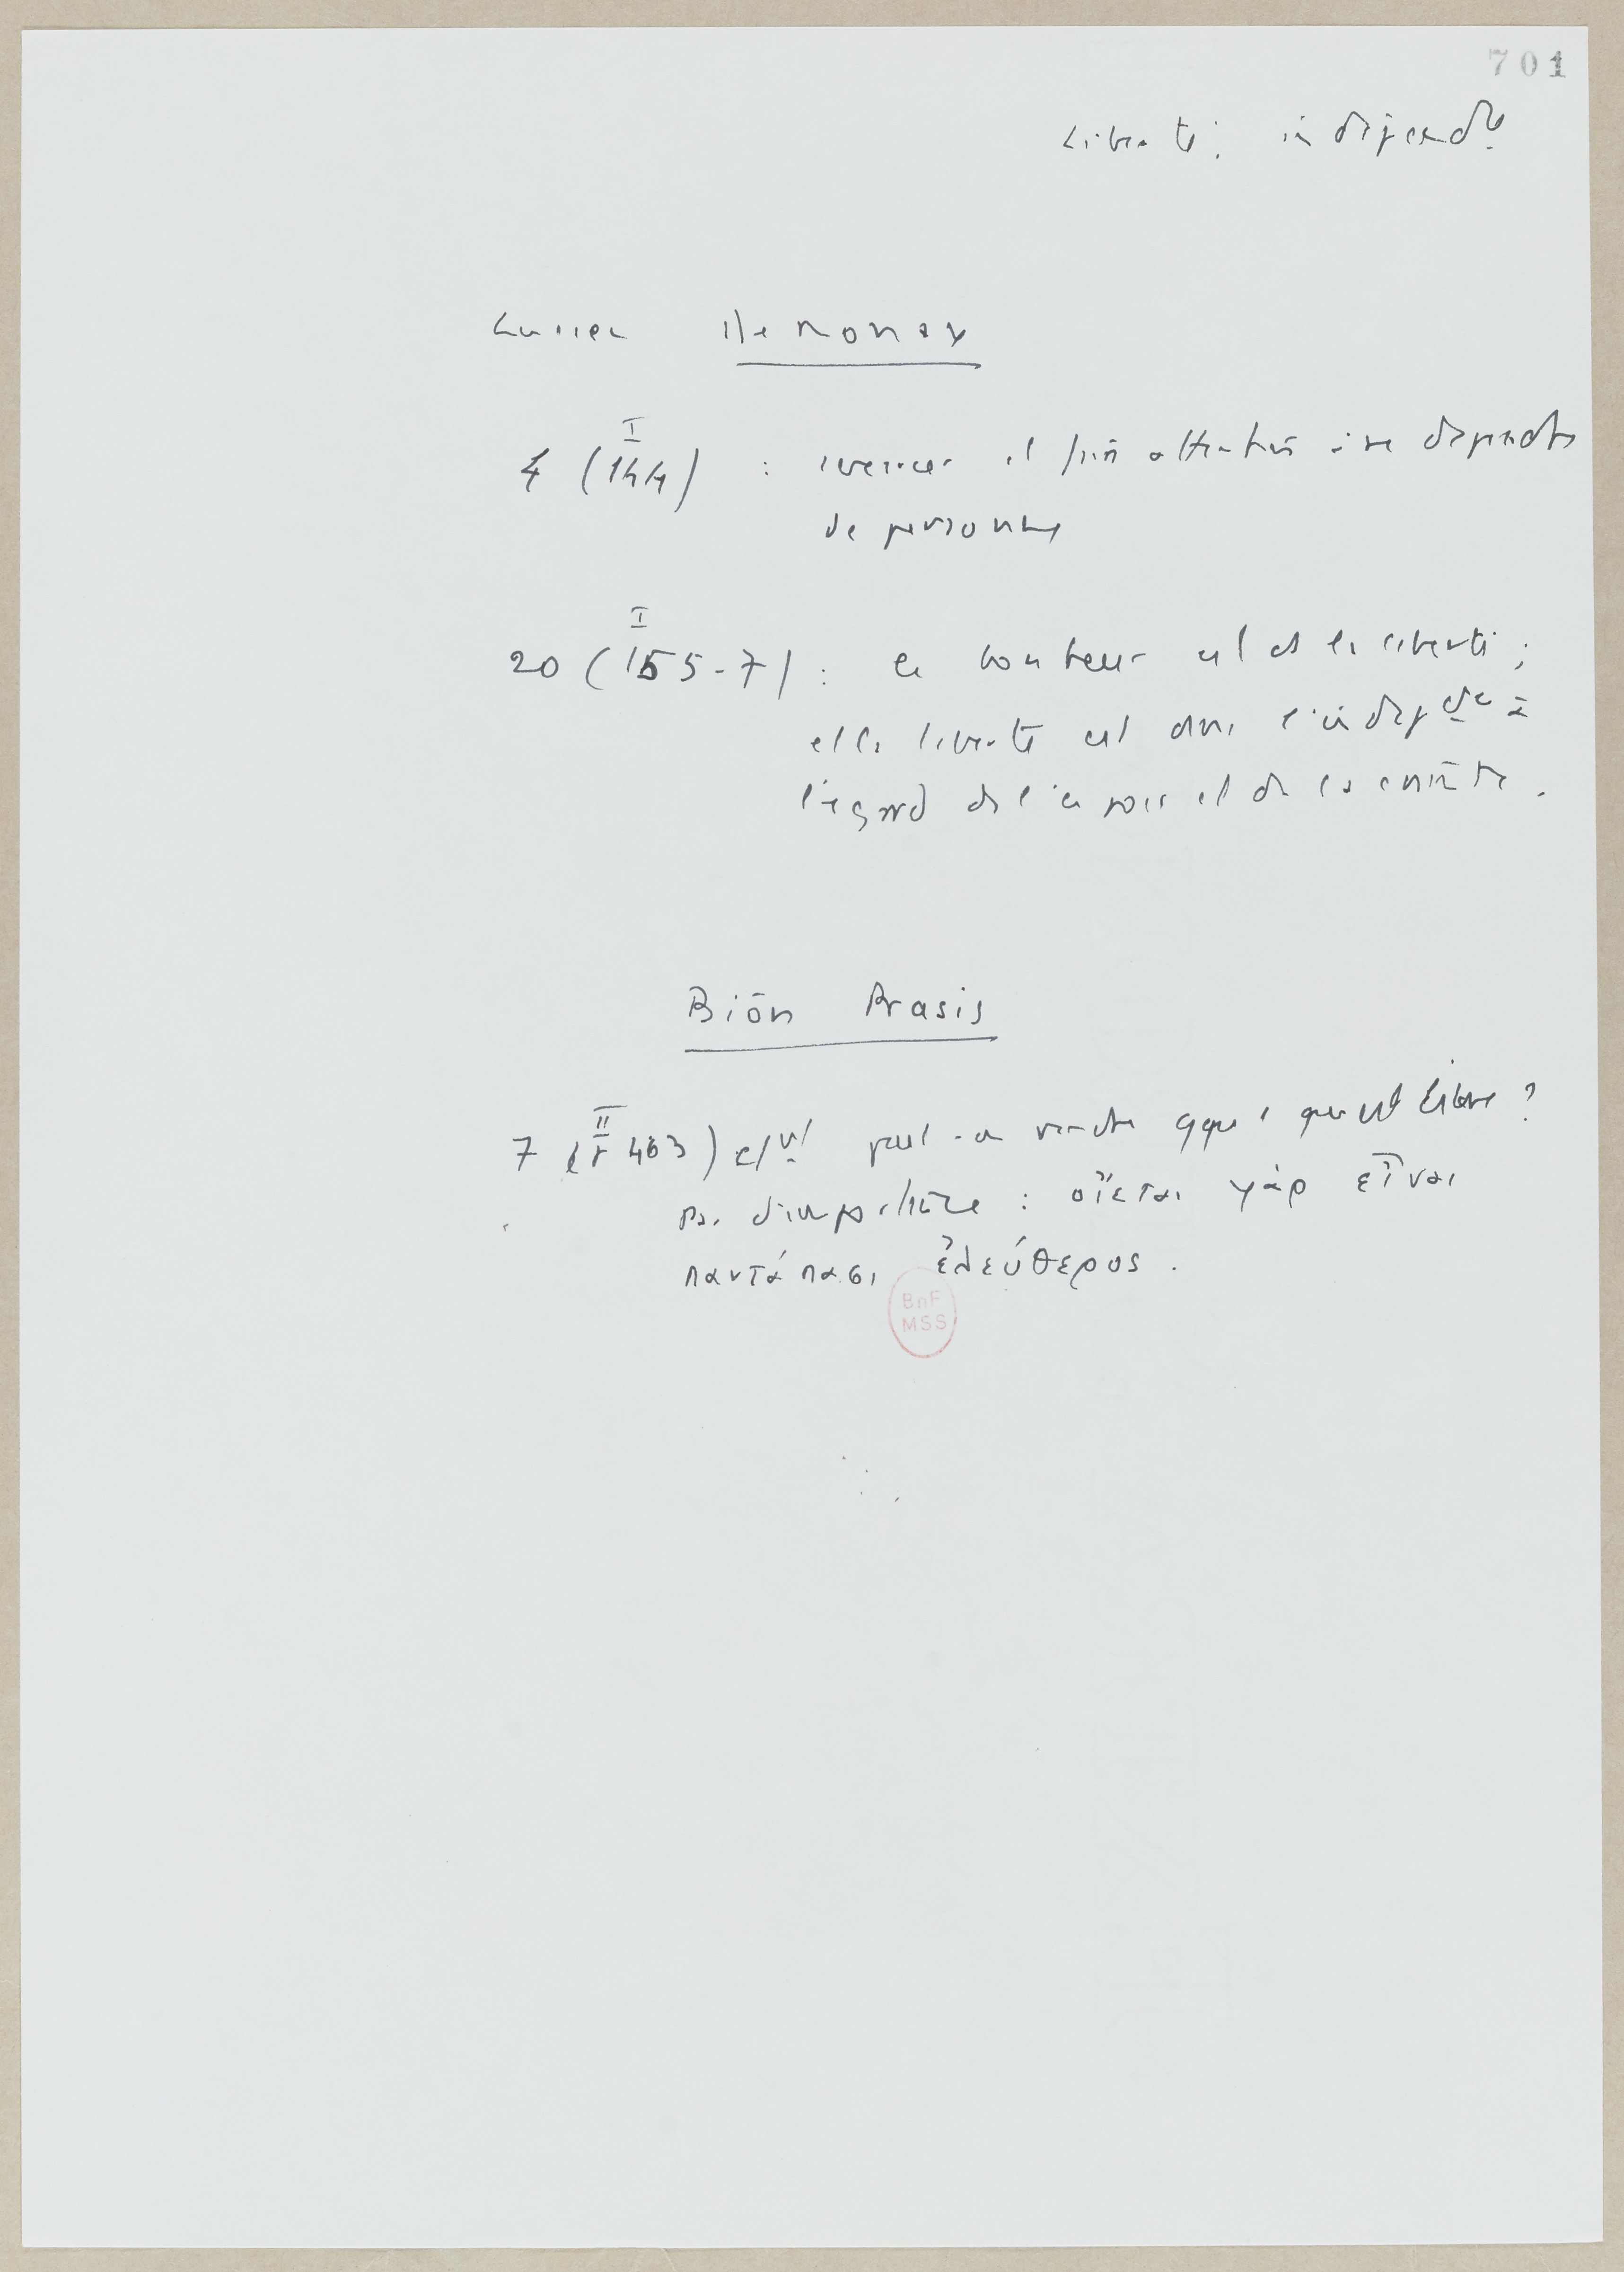 701
Liberté : indépendce
Lucien Demonax
I
4 (144) : exercer et faire attention à ne dépendre
de personne
I
20 (155-7) : le bonheur est ds la liberté ;
et la liberté est dans l'indépdce à
l'égard de l'espoir et de la crainte .
Biōn Prasis
II
7 ( 463) peut-on vendre qqu'1 qui est libre ?
Pas d'importance : οἴεται γὰρ εἶναι
παντάπασι ἐλεύθερος .
BnF
MSS